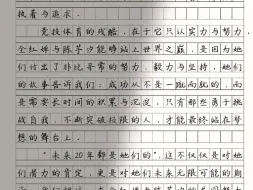 执着与追求.
竞技体育的残酷,在于它只认实力与努力,
全红婵与陈芋汐能够站上世界之巅,是因为她
们付出了非比寻常的努力、毅力与坚持,她们
的故事告诉我们:成功从不是一蹴而就的,而
是需要长时间的积累与沉淀,只有那些勇于挑
战自我、不断突破极限的人,才能最终站在梦
想的舞台上.
"未来20年都是她们的",这不仅仅是对她
们潜力的肯定,更是对她们未来无限可能的期